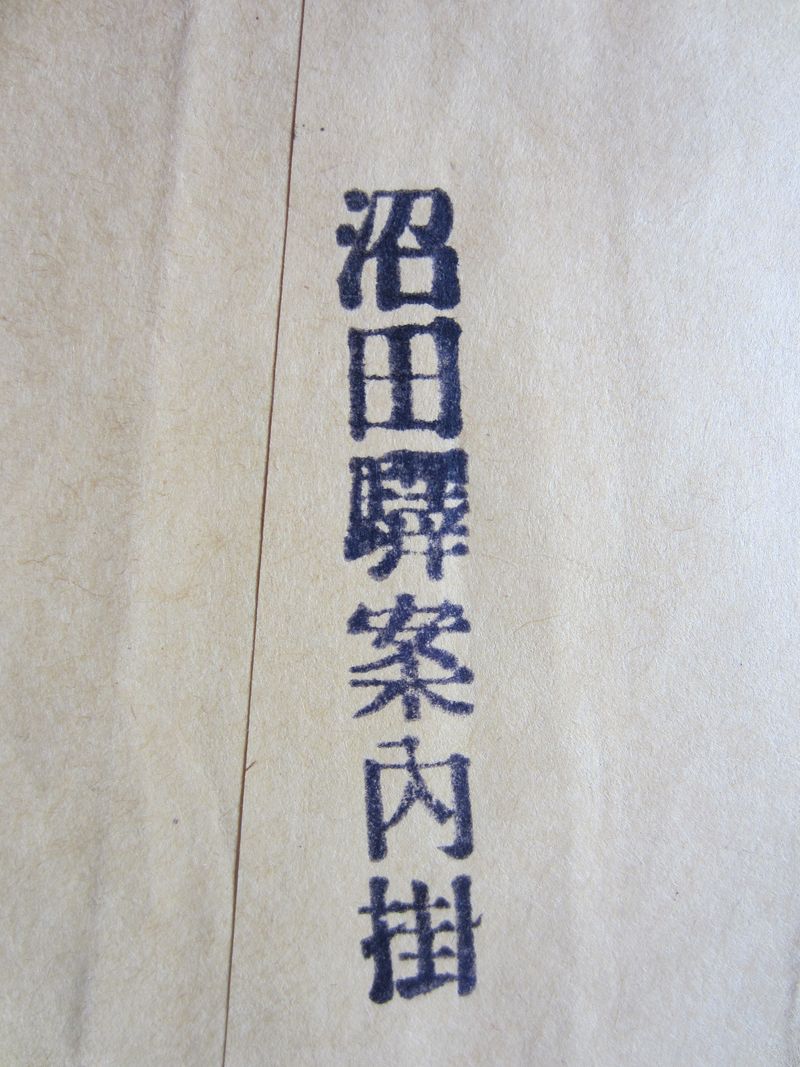 沼田驛案内掛